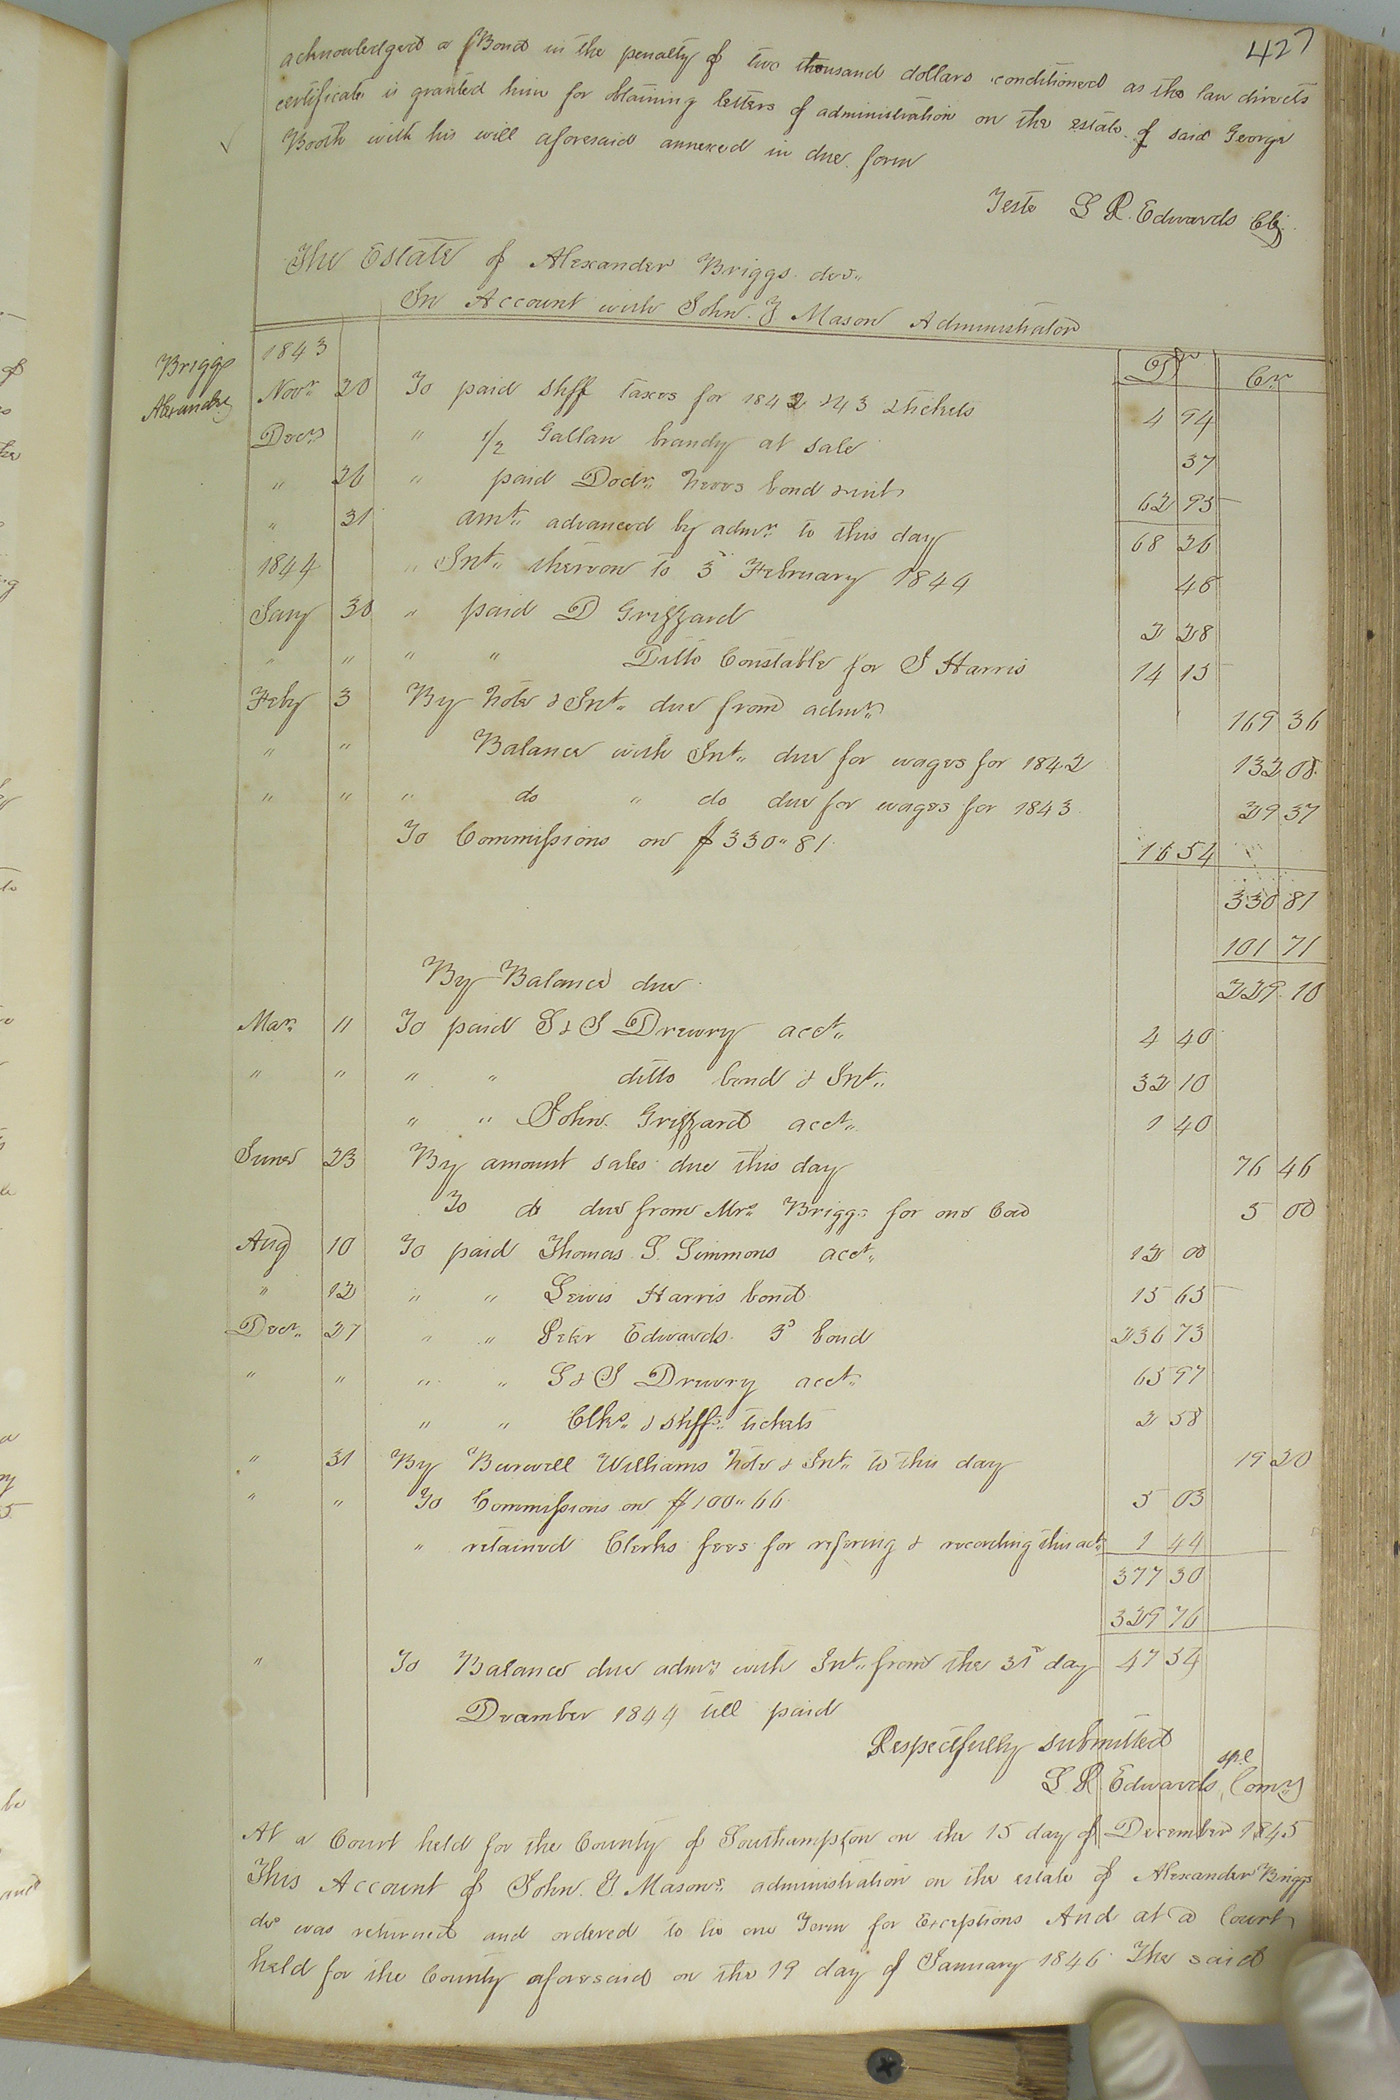 427
acknowledged a Bond in the penalty of two thousand dollars conditioned as the law directs
certificate is granted him for obtaining letters of administration on the estate of said George
Booth with his will aforesaid annexed in due form
Teste L R. Edwards Clk
The Estate of Alexander Briggs dec.
In Account with John. Mason Administrator
Briggs
Alexander
1843 Dr Cr
Novr 20 To paid Shff taxes for 1842 & 43 & tickets 4 94
Decr " 1/2 Gallan brandy at sale 37
" 26 " paid bond & int. 62 95
" 31 amt. advanced by admr. to this day 68 26
1844 " Int. thereon to 3 February 1844 48
Jany 30 " paid D Grizzard 2 28
" " " " Ditto Constable for J Harris 14 15
Feby 3 By note & Int. due from admr. 169 36
" " Balance with Int. due for wages for 1842 132 08
" " " do " do due for wages for 1843 29 37
To Commissions on $330.81 16 54
330 81
101 71
By Balance due 229 10
Mar. 11 To paid S & J Drewry acct. 4 40
" " " " ditto bond & Int. 32 10
" " John. Grizzard acct. 1 40
June 23 By amount sales due this day 76 46
To do due from Mrs Briggs for one Cow 5 00
Aug 10 To paid Thomas Simmons acct. 12 00
" 12 " " Lewis Harris bond 15 65
Decr. 27 " " Peter Edwards bond 236 73
" " " " S & J Drewry acct. 65 97
" " Clks. & Shffs. tickets 2 58
" 31 By Burwell Williams note & Int. to this day 19 20
" " To Commissions on $100.66 5 03
" retained Clerks fees for refering & recording this act. 1 44
377 30
329 76
" To Balance due admr. with Int. from the 31 day 47 54
December 1844 till paid
Respectfully submitted
L R Edwards, spl Comr
At a Court held for the County of Southampton on the 15 day of December 1845
This Account of John. Masons. administration on the estate of Alexander Briggs
dec was returned and ordered to lie one Term for Exceptions And at a Court
held for the County aforesaid on the 19 day of January 1846 The said